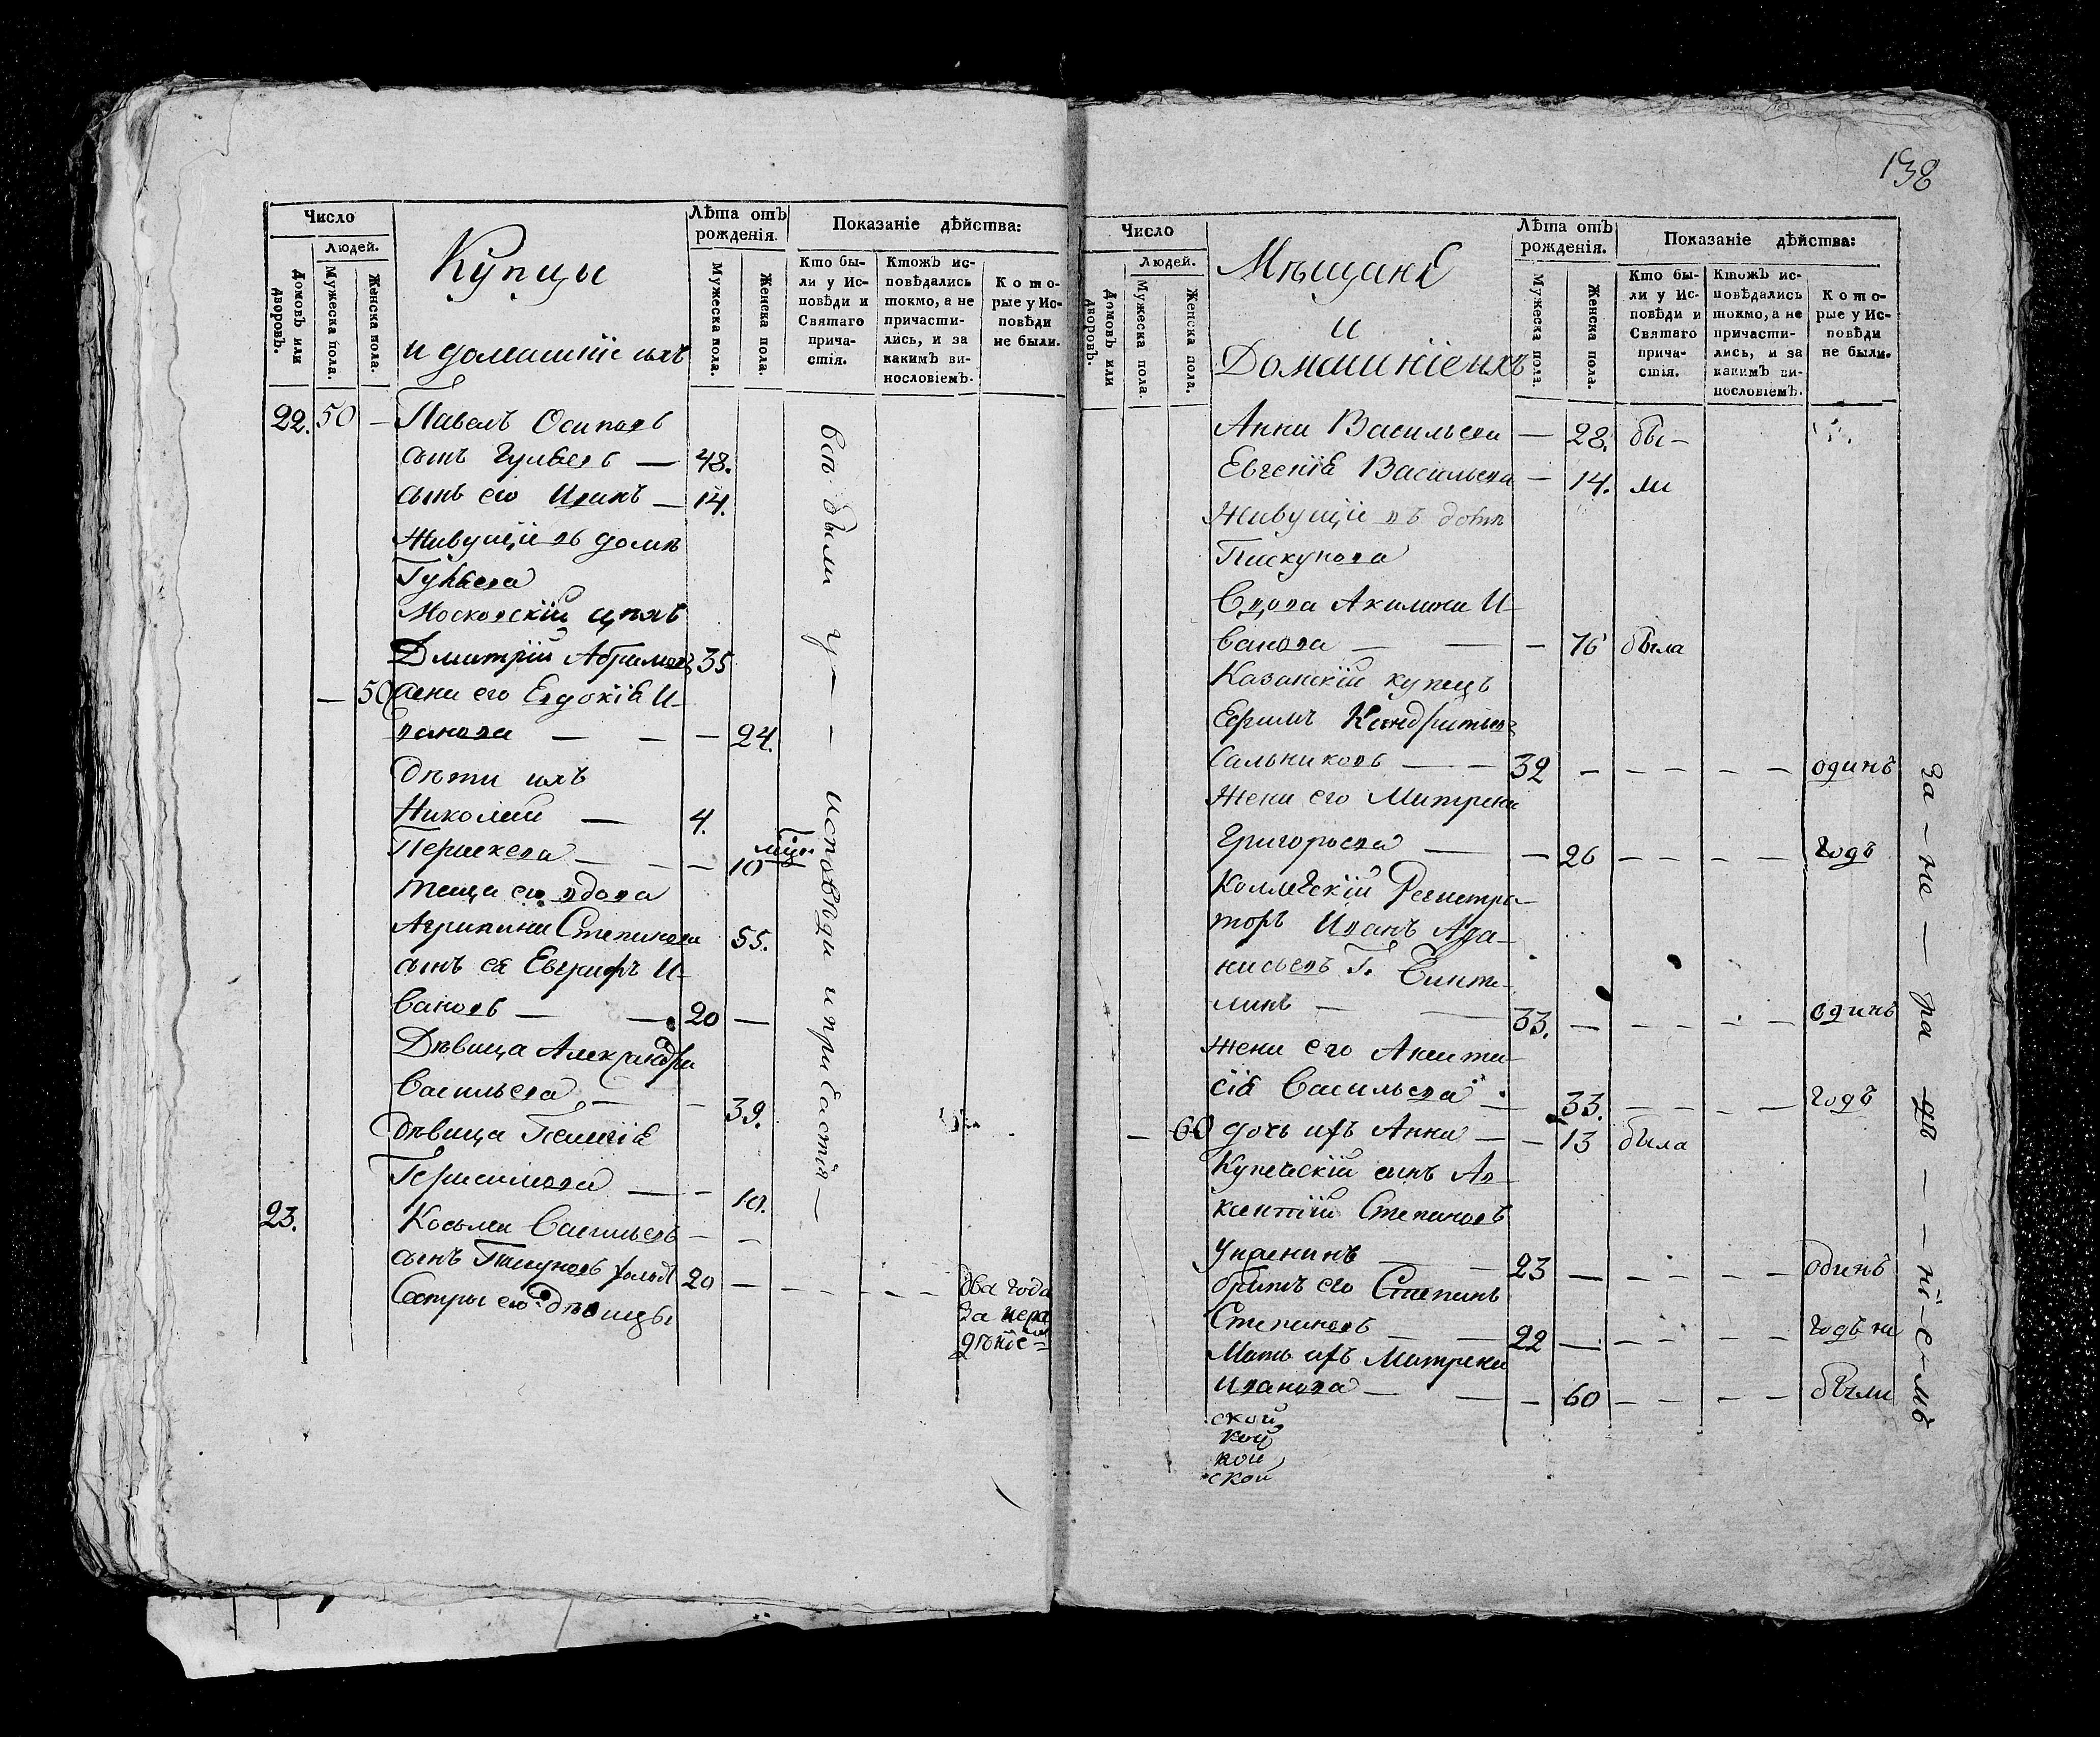 Число
Людей.
Домовъ или дворовъ.
Мужеска пола.
Женска пола.
Купцы
и домашніе ихъ
Лѣта отъ рожденія.
Мужеска пола.
Женска пола.
Показаніе дѣйства:
Кто бы-
ли у Ис-
повѣди и
Святаго
прича-
стія.
Ктожъ ис-
повѣдались
токмо, а не
причасти-
лись, и за
какимъ ви-
нословіемъ.
Кото-
рые у Ис-
повѣди
не были.
22. 50 — Павелъ Осиповъ
сынъ — 48.
сынъ его Иванъ — 14.
Живущіи въ домѣ
Московскій
Дмитрій 35
— 50 жена его Евдокія И-
ванова — — — 24.
Дѣти ихъ
Николай — 4.
Параскева — — 10
теща его вдова
Агрипина Степанова 55.
сынъ ея Евграфъ И-
вановъ — — 20 —
Дѣвица Александра
Васильева — — 39.
Дѣвица Пелагія
Герасимова — — 10.
23. Косьма Васильевъ — —
сынъ Пискуновъ 20 — — — — — два года
Сестры его дѣвицы за нера
дѣніе
всѣ были у — — исповѣди и причастія —
138
Число
Людей.
Домовъ или дворовъ.
Мужеска пола.
Женска пола.
Мѣщане
и
Домашніе ихъ
Лѣта отъ рожденія.
Мужеска пола.
Женска пола.
Показаніе дѣйства:
Кто бы-
ли у Ис-
повѣди и
Святаго
прича-
стія.
Ктожъ ис-
повѣдались
токмо, а не
причасти-
лись, и за
какимъ ви-
нословіемъ.
Кото-
рые у Ис-
повѣди
не были.
Анна Васильева — 28. бы-
Евгенія Васильева — 14. ли
Живущіе въ домѣ
Пискунова
Вдова Акилина И-
ванова — — — 76 была
Казанскій купецъ
Ефимъ Кандратьевъ
Сальниковъ — — 32 — — — — — одинъ
Жена его Матрена
Григорьева — — 26 — — — — годъ
Коллежскій Регистра-
торъ Иванъ Афа-
насьевъ
линъ — — 33. — — — — — одинъ
жена его Анаста-
сія Васильева — — 33. — — — — годъ
— 60 дочь ихъ Анна — — 13 была
Купеческій сынъ Ав-
ксентій Степановъ
— — 23 — — — — — одинъ
братъ его Степанъ
Степановъ — — 22 — — — — — годъ не
Мать ихъ Матрена
Иванова — — — 60 — — — — были
ской
кой
кой
ской
за — не — ра — дѣ — — ні — е — мъ